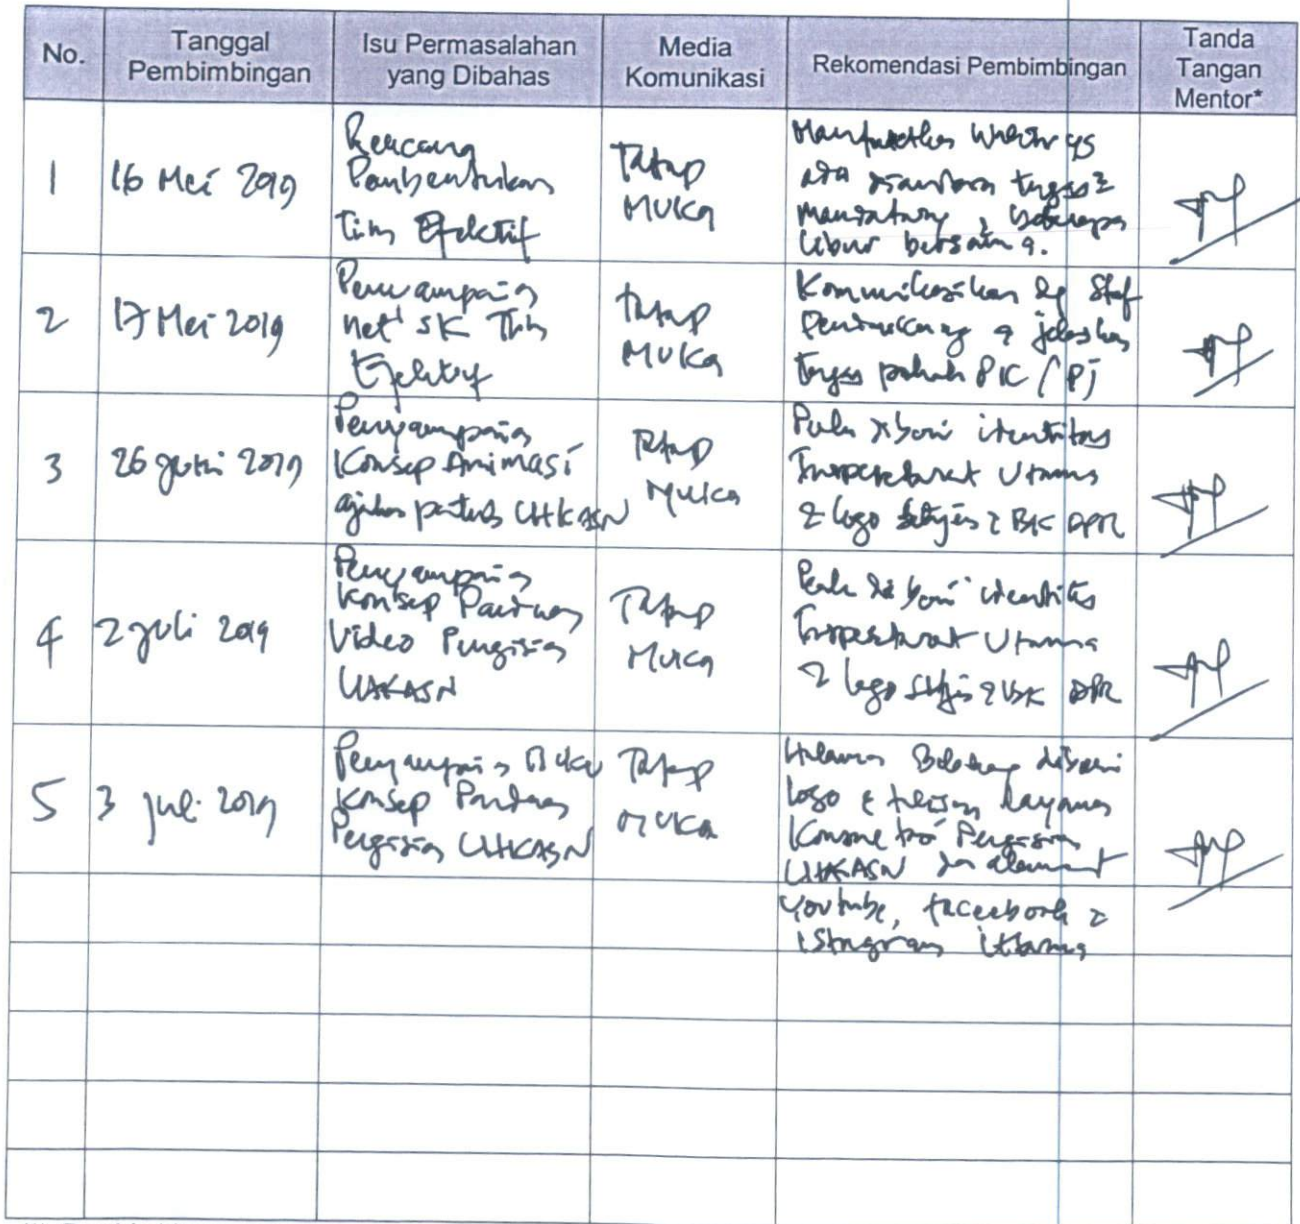 No.
Tanggal
Pembimbingan
Isu Permasalahan
yang Dibahas
Media
Komunikasi
Rekomendasi Pembimbingan
Tanda
Tangan
Mentor*
1
16 Mei 2019
Rencana
Pembentukan
Tim Efektif
Tatap
Muka
ada tugas2
libur bersama
2
17 Mei 2019
SK Tim
Efektif
Tatap
Muka
Komunikasikan dg Staf
Pendukung & jelaskan
tugas pokok PIC / PJ
3
26 Juni 2019
Penyampaian
Konsep Animasi
LHKASN
Tatap
Muka
Perlu diberi identitas
Inspektorat Utama
& logo Setjen & BK DPR
4
2 Juli 2019
Penyampaian
Konsep Panduan
Video Pengisian
LHKASN
Tatap
Muka
Perlu diberi identitas
Inspektorat Utama
& logo Setjen & BK DPR
5
3 Juli 2019
Penyampaian Buku
Konsep Panduan
Pengisian LHKASN
Tatap
Muka
Halaman Belakang diberi
logo & tulisan layanan
Pengisian
LHKASN
Youtube, facebook &